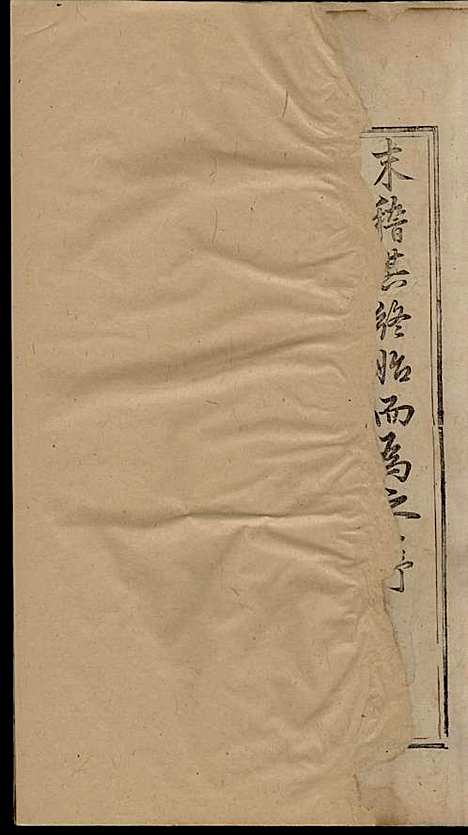 末稽其終始而為之序